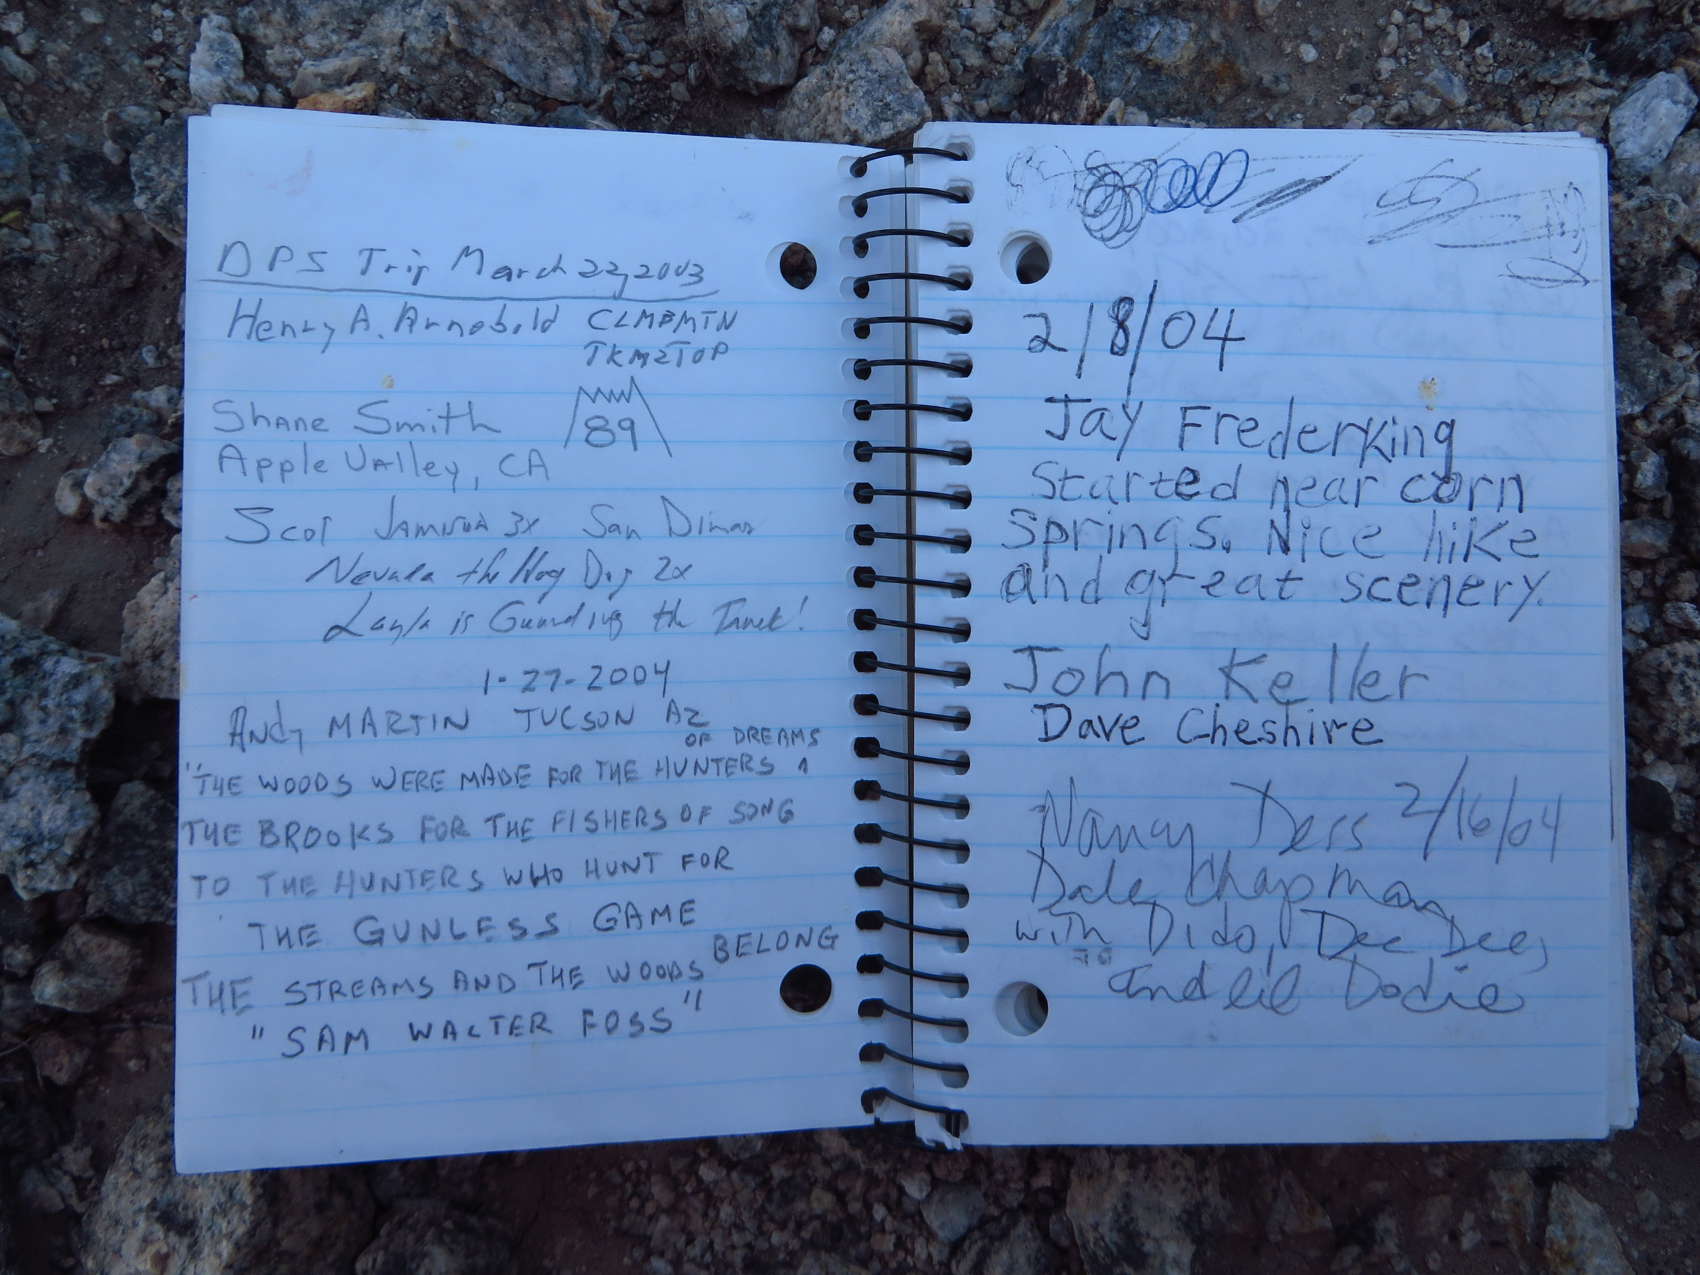 DPS Trip March 22, 2003
Henry A. Arnebold CLMBMTN
TKM2TOP
Shane Smith 89
Apple Valley, CA
Scot Jamison 3x San Dimas
Nevada the Hog Dog 2x
Layla is Guarding the Truck!
1-27-2004
Andy MARTIN TUCSON AZ
OF DREAMS
"THE WOODS WERE MADE FOR THE HUNTERS ^
THE BROOKS FOR THE FISHERS OF SONG
TO THE HUNTERS WHO HUNT FOR
THE GUNLESS GAME
THE STREAMS AND THE WOODS BELONG
"SAM WALTER FOSS"
2/8/04
Jay Frederking
Started near corn
springs. Nice hike
and great scenery.
John Keller
Dave Cheshire
Nancy Dess 2/16/04
Dale Chapman
with Dido, Dee Dee,
and lil Dodie